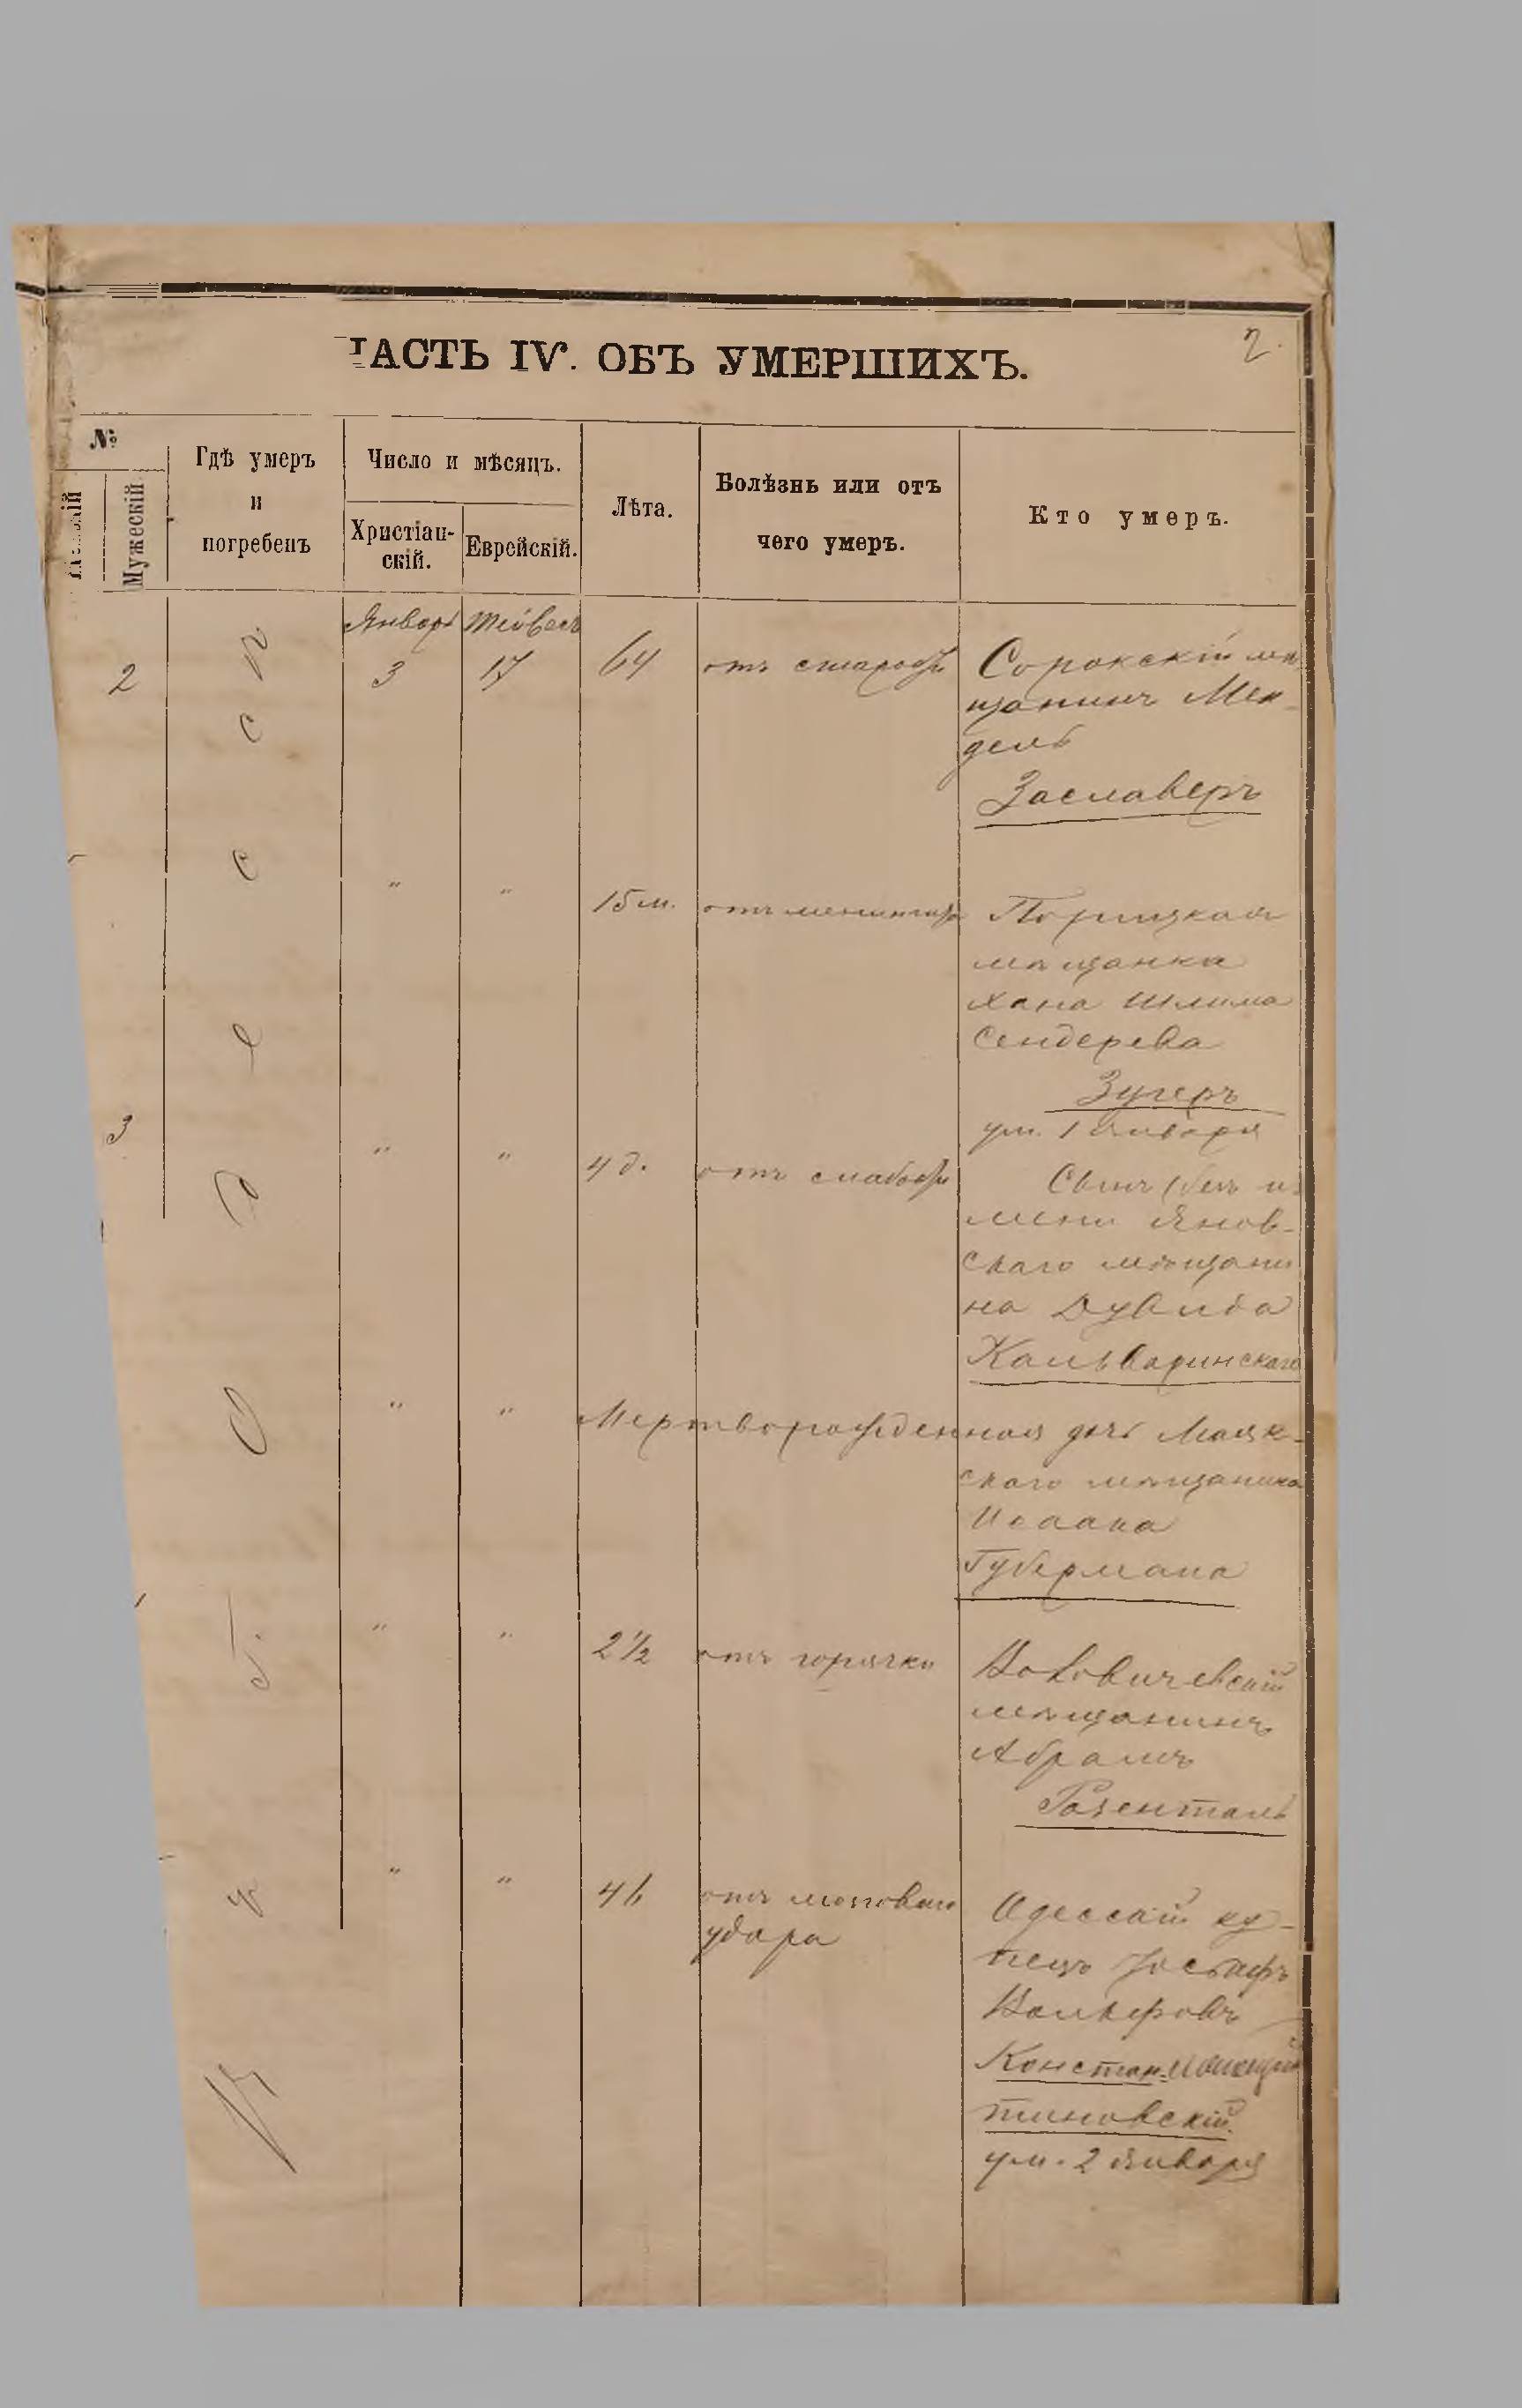 2.
ЧАСТЬ IV. ОБЪ УМЕРШИХЪ.
№
Мужескій
Гдѣ умеръ
и
погребенъ
Число и мѣсяцъ.
Христіан-
скій.
Еврейскій.
Лѣта.
Болѣзнь или отъ
чего умеръ.
Кто умеръ.
Январь Тейвесъ
2 3 17 64 отъ старости Сорокскій мѣ
щанинъ Мен-
дель
Заславеръ
" " 15 м. отъ менингита Порицкая
мѣщанка
Хана Шлима
Сендерева
Зугеръ
ум. 1 Января
3 " " 4 д. отъ слабости Сынъ (безъ и
мени Янов-
скаго мѣщани
на Дувида
Кальваринскаго
" " Мертворожденная дочь Маяк-
скаго мѣщанина
Исаака
Губермана
" " 2½ отъ горячки
мѣщанинъ
Абрамъ
Розенталь
" " 46 отъ мозговаго
удара
Одесскій ку-
пецъ Іосифъ
Вольфовъ
Констан-
тиновскій.
ум. 2 Января
въ г. Одессѣ